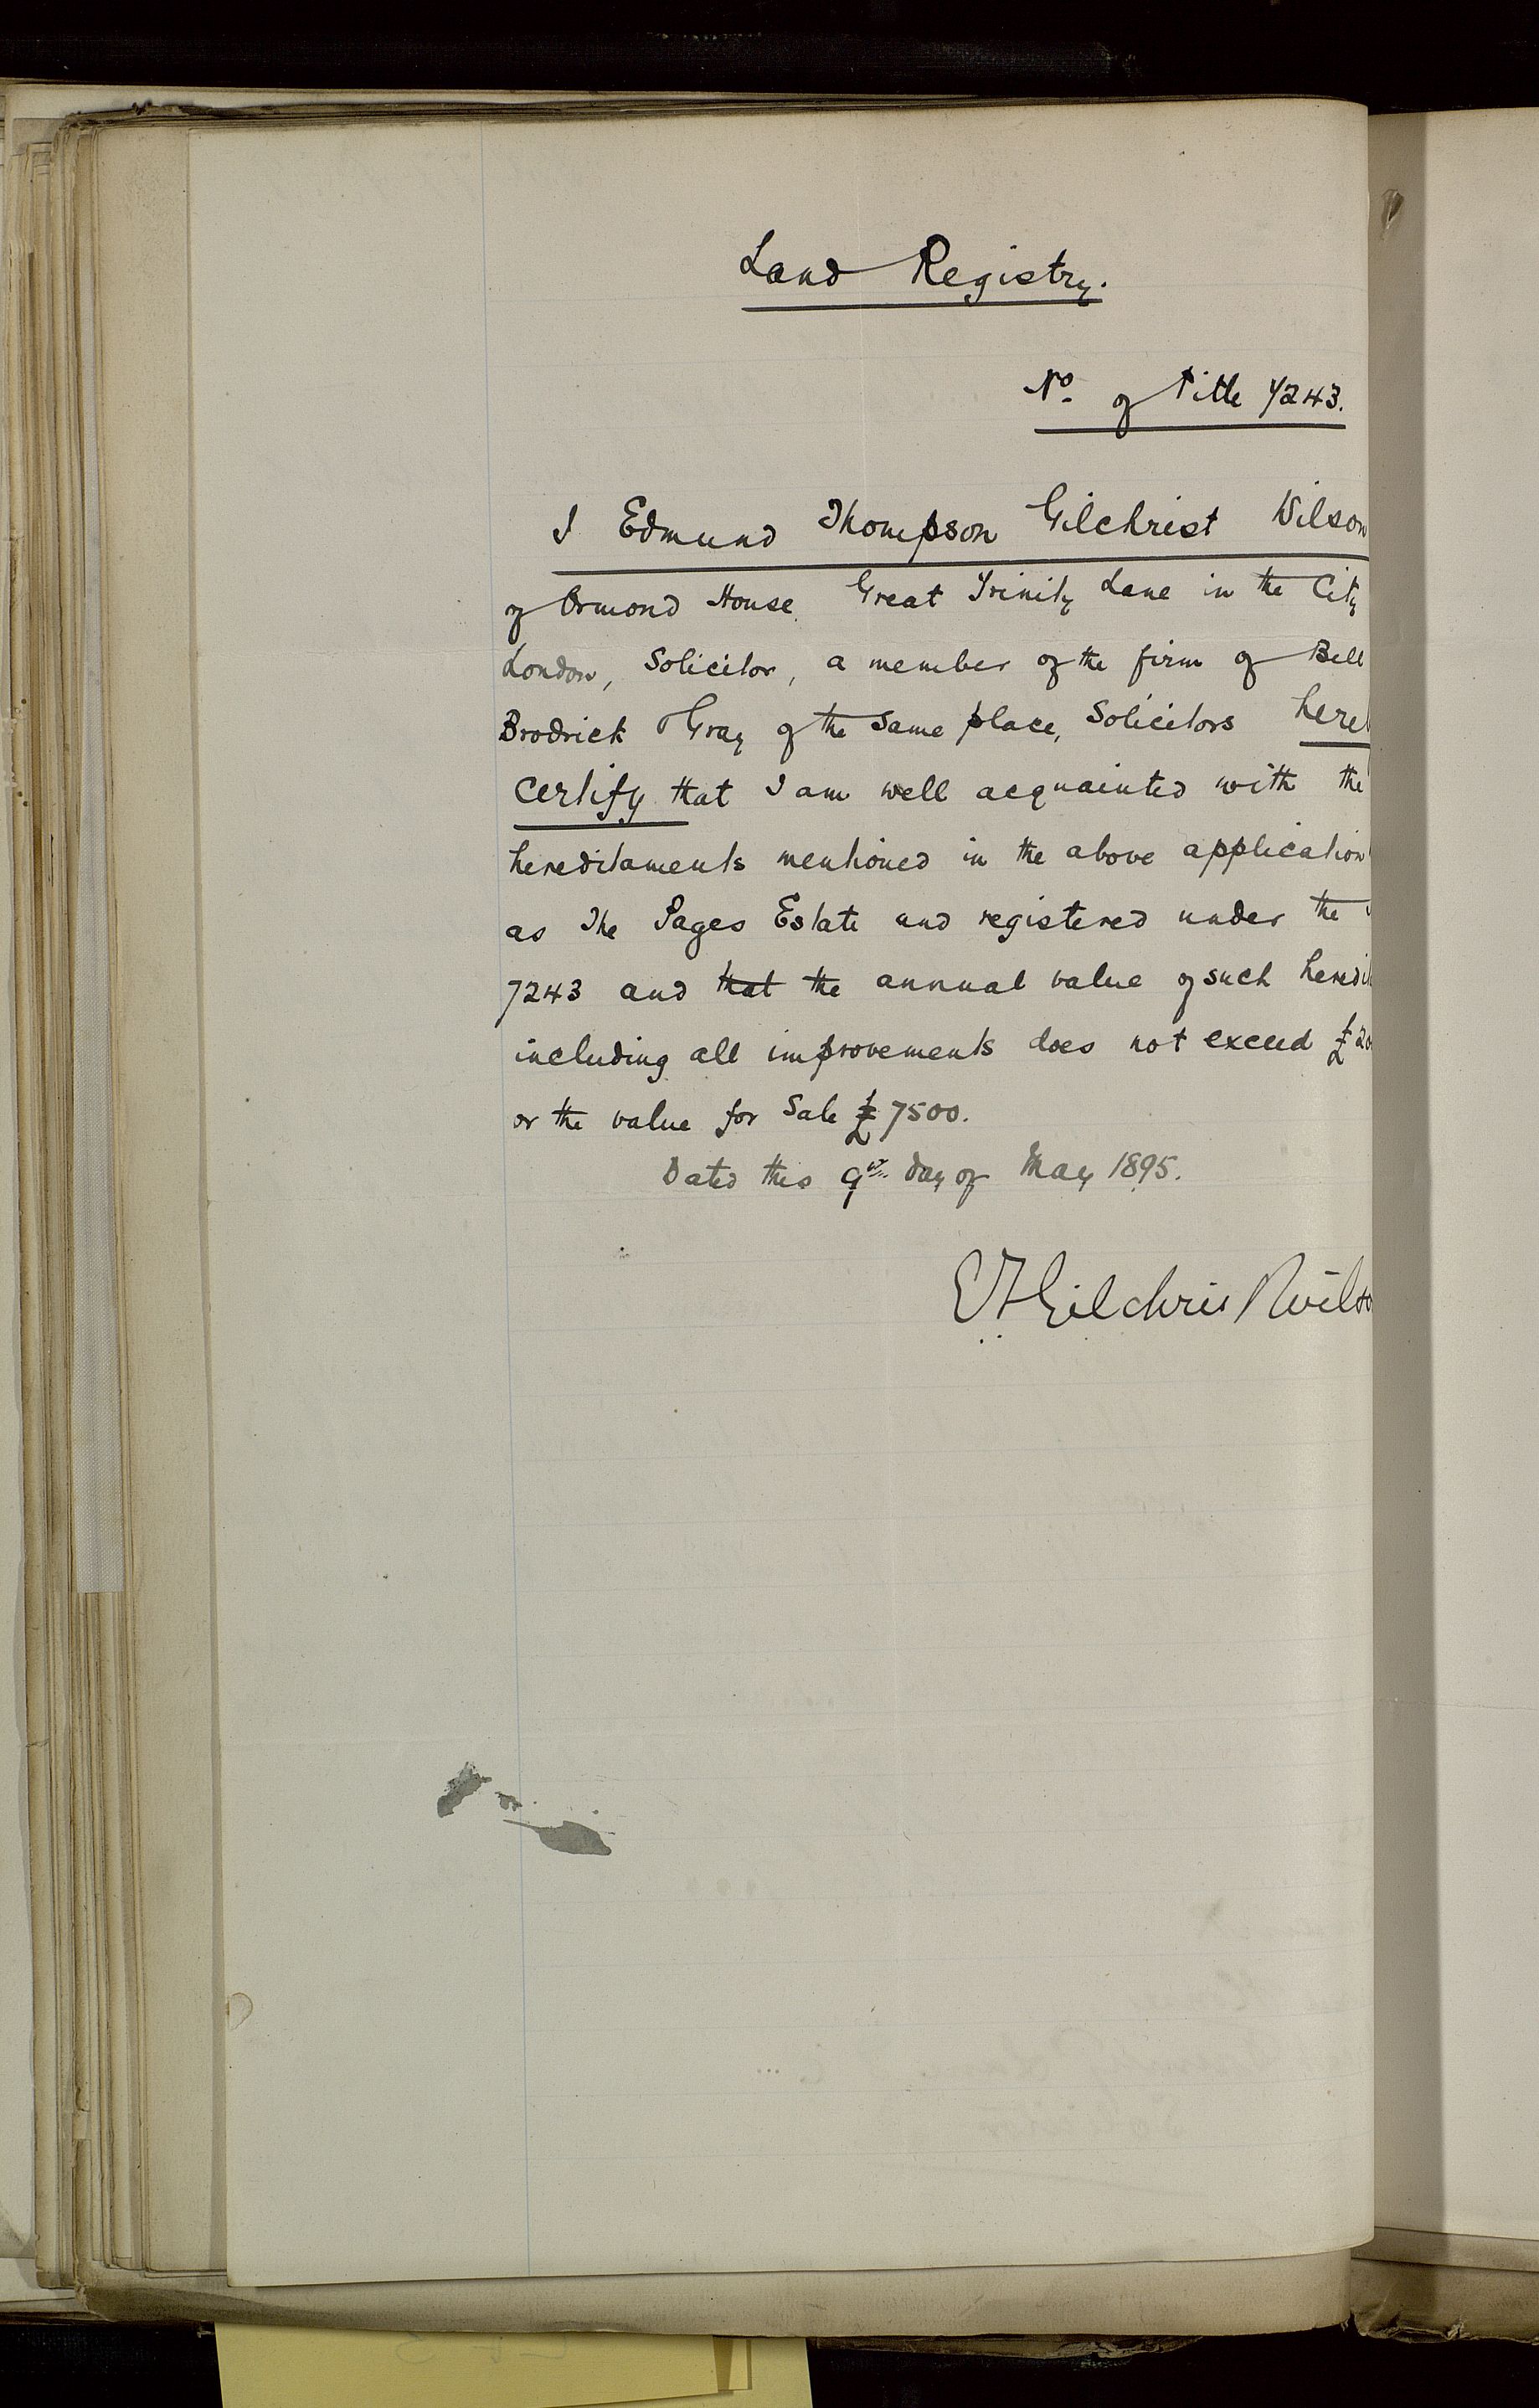 Land Registry.
No. of Title 7243.
I Edmund Thompson Gilchrist Wilson
of Ormond House. Great Trinity Lane in the City
London, Solicitor, a member of the firm of Bell
Brodrick & Gray of the same place, Solicitors here
certify that I am well acquainted with the
hereditaments mentioned in the above application
as The Pages Estate and registered under the
7243 and that the annual value of such heredi
including all improvements does not exceed £20
or the value for Sale £7500.
Dated this 9th day of May 1895.
E T Gilchrist Wilso